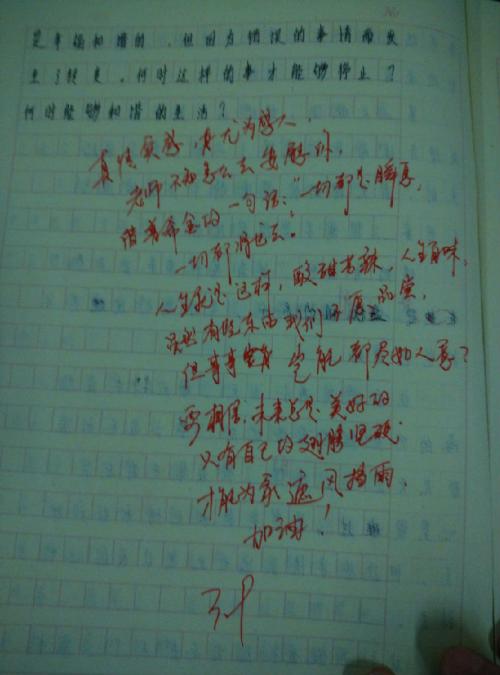 是幸福和谐的,但因为错误的事情而发
生了转变。何时这样的事才能够停止?
何时能够和谐的生活?
真情实感,尤为感人。
老师不知怎么去安慰你,
借普希金的一句话:"一切都是瞬息,
一切都将过去。"
人生就是这样,酸甜苦辣,人生百味,
虽然有些东西我们不愿品尝,
但事事 岂能都尽如人意?
要相信,未来总是美好的
只有自己的翅膀坚硬,
才能为家遮风挡雨,
加油!
37